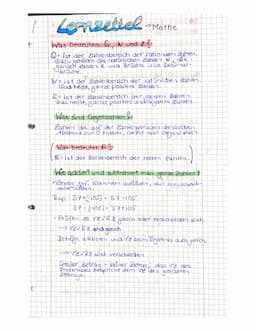 Lernzettel → Mathe
Was bedeuten Q, N und Z?
Q = ist der Zahlenbereich der rationalen Zahlen.
Dazu gehören die natürlichen Zahlen N, die
ganzen Zahlen Z und Brüche und Dezimal-
brüche.
N = ist der Zahlenbereich der natürlichen Zahlen.
Das heißt, ganze positive Zahlen.
Z = ist der Zahlenbereich der ganzen Zahlen.
Das heißt, ganze positive und negative Zahlen.
Was sind Gegenzahlen?
Zahlen die auf der Zahlengeraden denselben
Abstand von 0 haben, nennt man Gegenzahlen.
Was bedeutet R?
R = ist der Zahlenbereich der reellen Zahlen.
Wie addiert und subtrahiert man ganze Zahlen?
Bsp.: 37 + (-105) = 37 - 105
37 - (-105) = 37 + 105
• Prüfen ob VZ/RZ gleich oder verschieden sind
→ VZ/RZ sind gleich
Beträge addieren und VZ beim Ergebnis
→ VZ/RZ sind verschieden
Großer Betrag - kleiner Betrag, das VZ des
Ergebnisses entspricht dem VZ des größeren
Betrags.